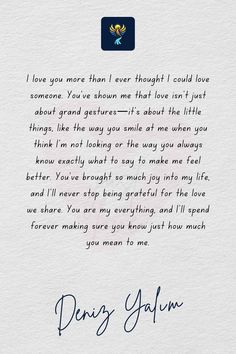 I love you more than I ever thought I could love
someone. You've shown me that love isn't just
about grand gestures—it's about the little
things, like the way you smile at me when you
think I'm not looking or the way you always
know exactly what to say to make me feel
better. You've brought so much joy into my life,
and I'll never stop being grateful for the love
we share. You are my everything, and I'll spend
forever making sure you know just how much
you mean to me.
Deniz Yalım